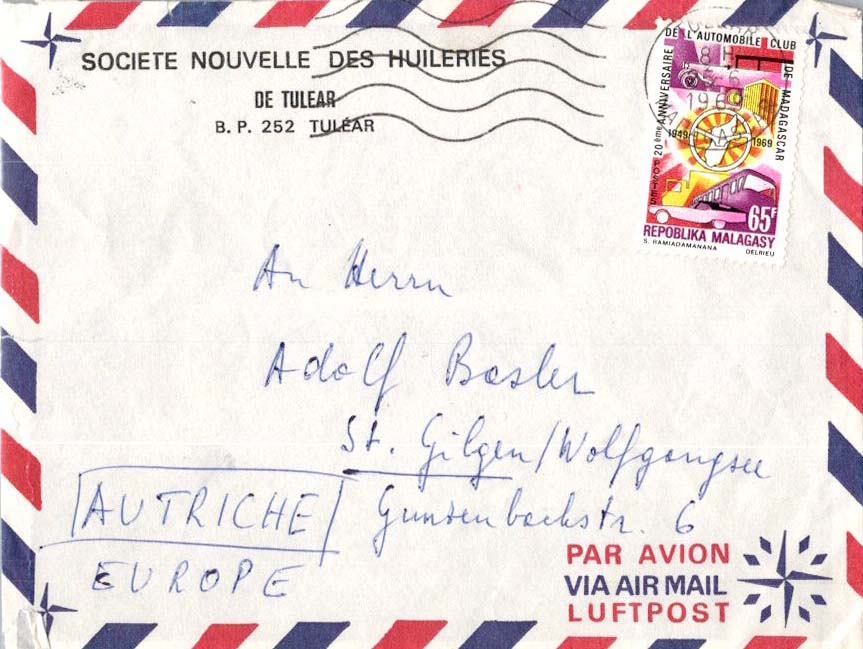 SOCIETE NOUVELLE DES HUILERIES
DE TULEAR
B. P. 252 TULÉAR
20ème ANNIVERSAIRE DE L'AUTOMOBILE CLUB DE MADAGASCAR
8H
25-6
1969
1949 1969
POSTES
65F
REPOBLIKA MALAGASY
S. RAMIADAMANANA DELRIEU
An Herrn
Adolf Basler
St. Gilgen/Wolfgangsee
AUTRICHE
Gunsenbachstr. 6
EUROPE
PAR AVION
VIA AIR MAIL
LUFTPOST